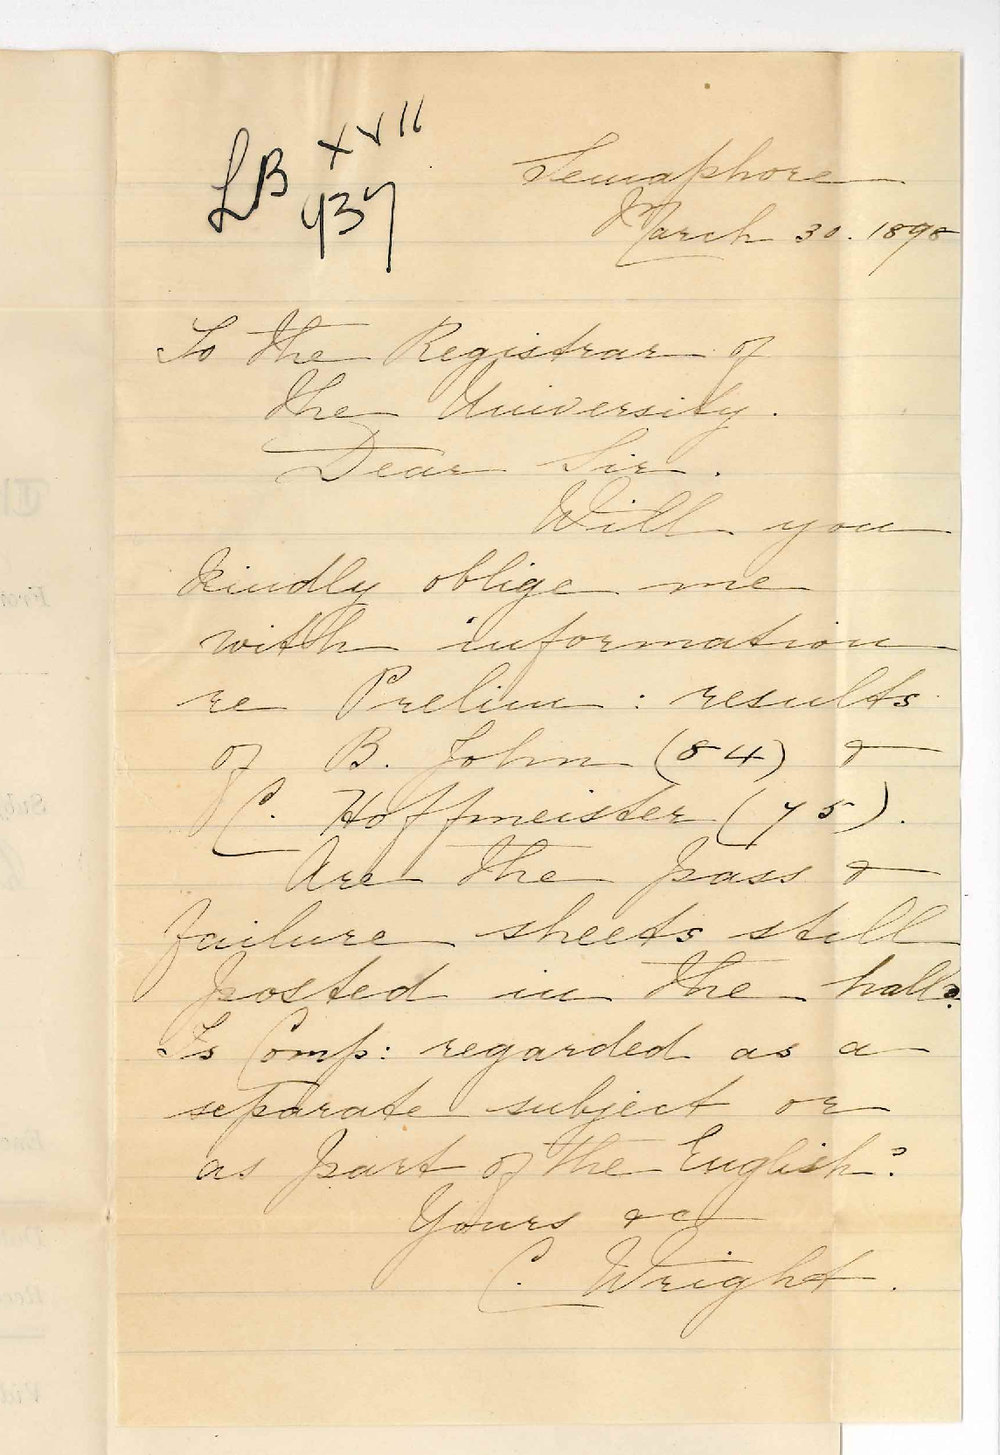 LB XVII
737
Semaphore
March 30. 1898
To the Registrar of
the University.
Dear Sir.
Will you
kindly oblige me
with information
re Prelim: results
of B. John (84) &
C. Hoffmeister (75).
Are the pass &
failure sheets still
posted in the hall?
Is Comp: regarded as a
separate subject or
as part of the English?
Yours &c
C. Wright.